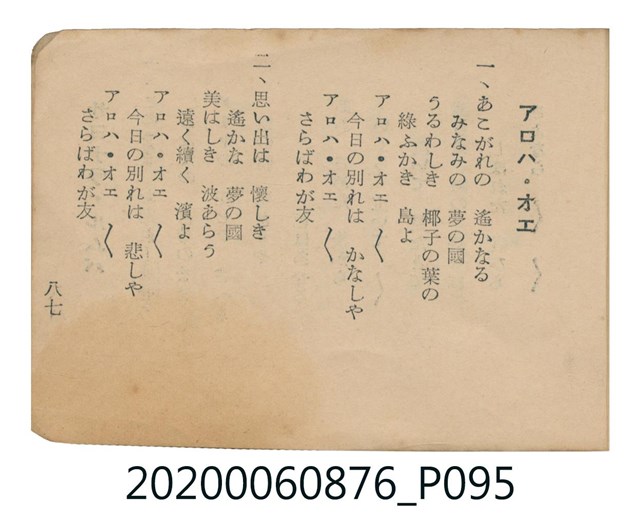 アロハ・オエ
一、あこがれの 遙かなる
みなみの 夢の國
うるわしき 椰子の葉の
綠ふかき 島よ
アロハ・オエ 〱
今日の別れは かなしや
アロハ・オエ 〱
さらばわが友
二、思い出は 懷しき
遙かな 夢の國
美はしき 波あらう
遠く續く 濱よ
アロハ・オエ 〱
今日の別れは 悲しや
アロハ・オエ 〱
さらばわが友
八七
20200060876_P095